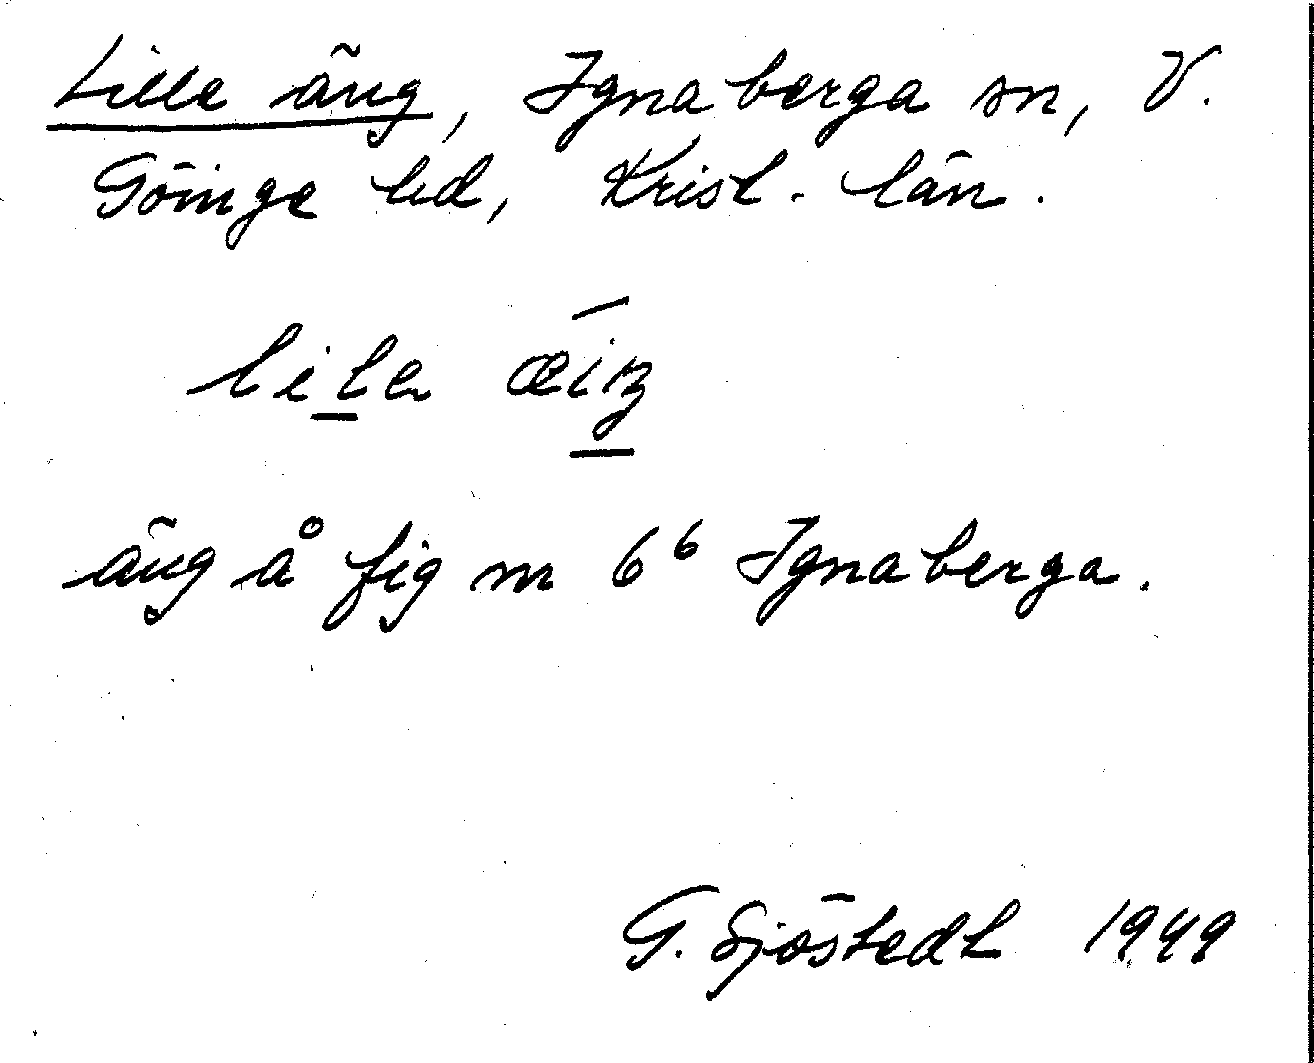 Lille äng, Ignaberga sn, V.
Göinge hd, Krist. län.
lila æiŋ
äng å fig m 6⁶ Ignaberga.
G. Sjöstedt 1949